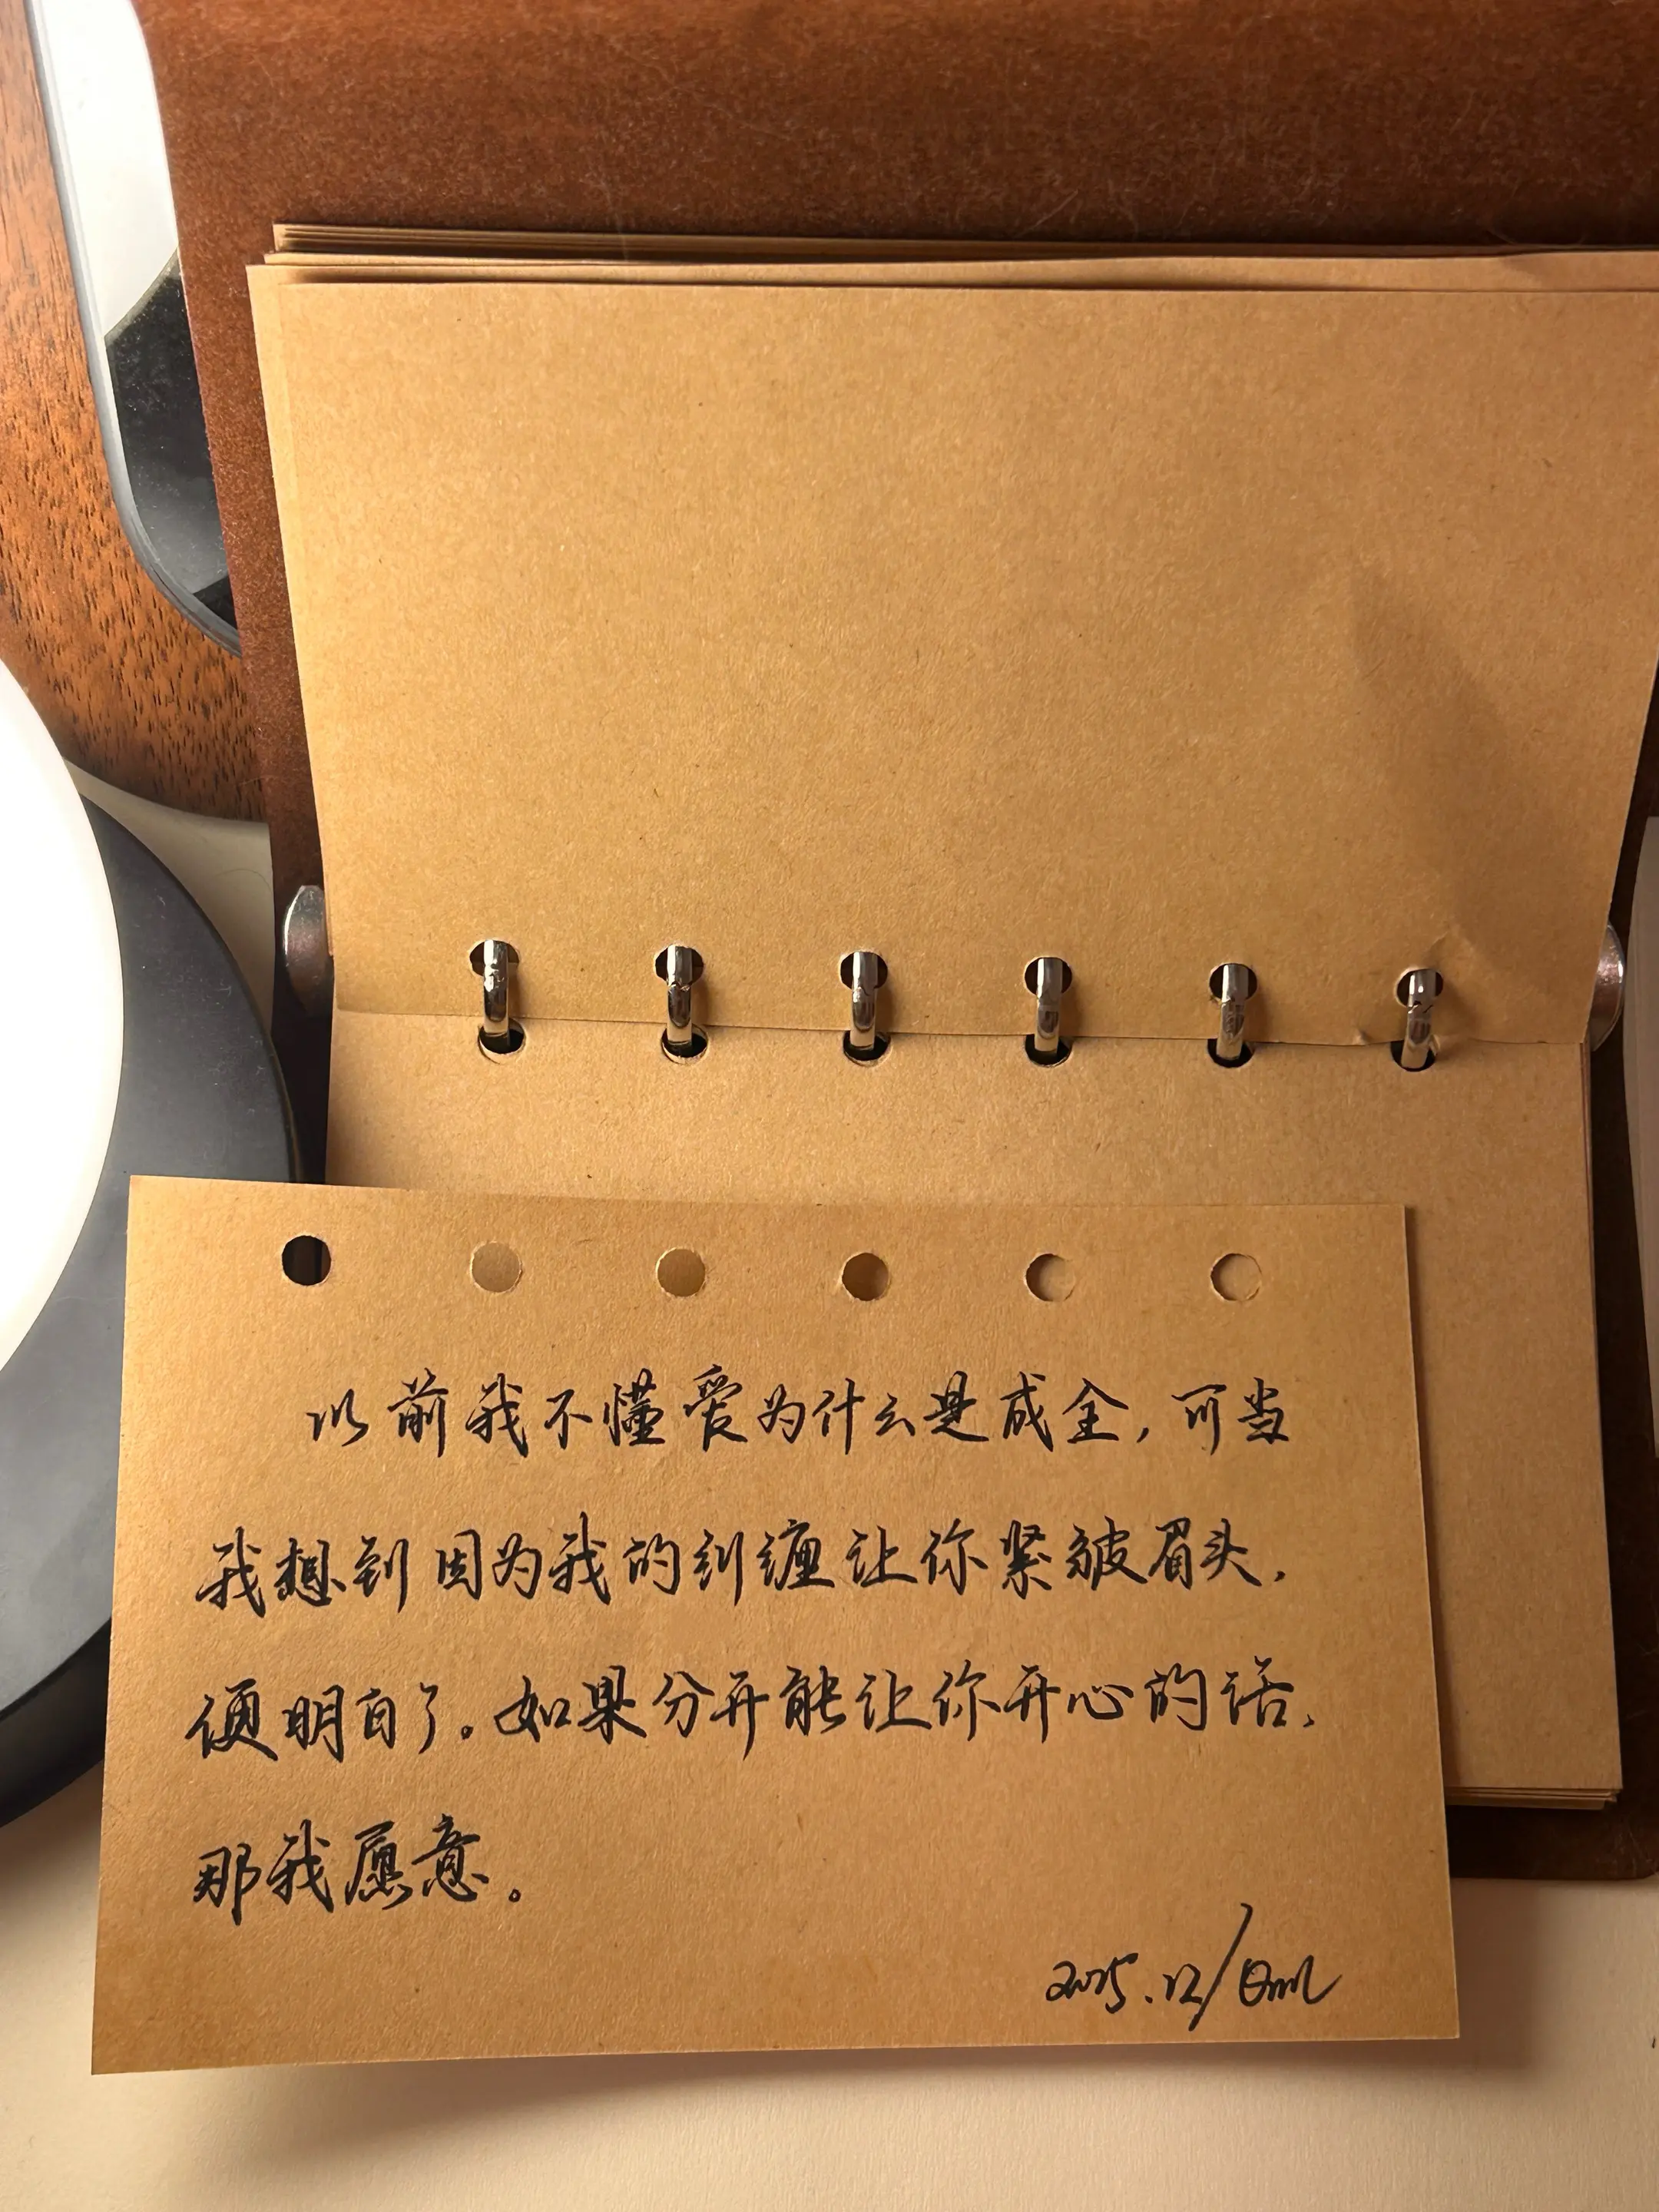 以前我不懂爱为什么是成全，可当
我想到因为我的纠缠让你紧皱眉头，
便明白了。如果分开能让你开心的话，
那我愿意。
2025.12/